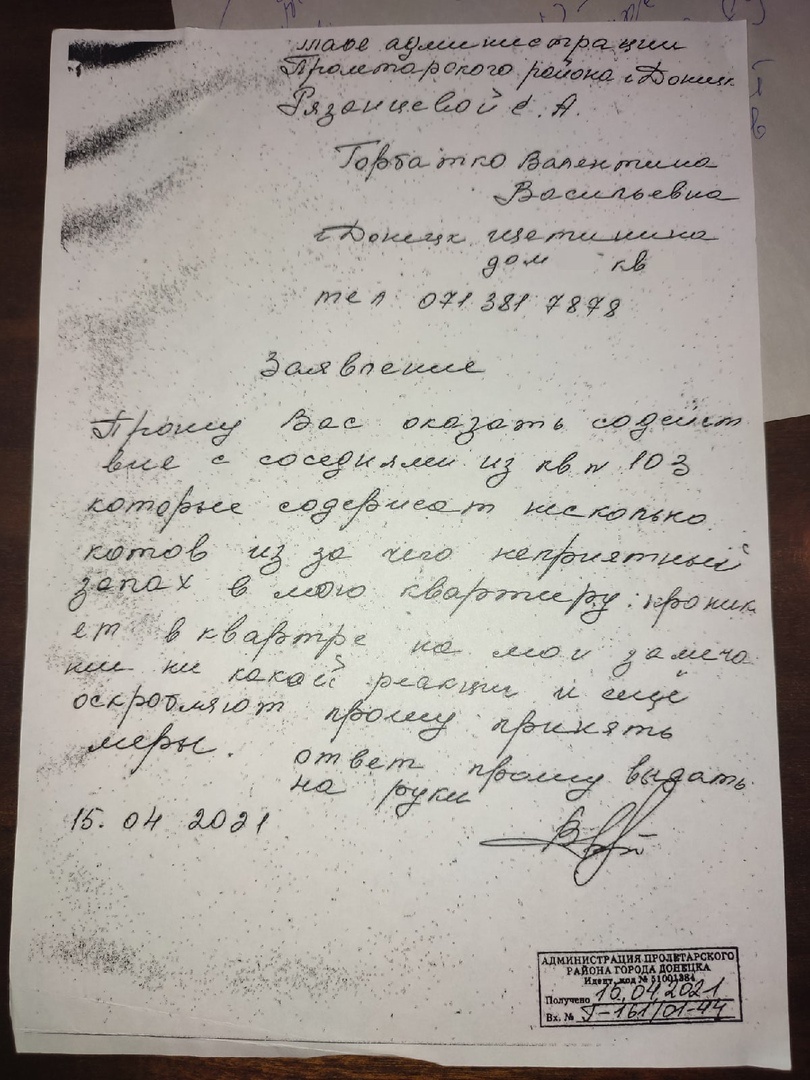 главе администрации
Пролетарского района г Донецк
Рязанцевой С. А.
Горбатко Валентина
Васильевна
г Донецк Щетинина
дом кв
тел 071 381 7878
Заявление
Прошу Вас оказать содейст
вие с соседями из кв № 103
которые содержат несколько
котов из за чего неприятный
запах в мою квартиру. проник
ет в квартре на мои замеча
нии ни какой реакции и ещё
оскробляют прошу принять
меры. ответ прошу выдать
на руки
15. 04 2021
АДМИНИСТРАЦИЯ ПРОЛЕТАРСКОГО
РАЙОНА ГОРОДА ДОНЕЦКА
Идент. код № 51001384
Получено 15.04.2021
Вх. № Г-161/01-44